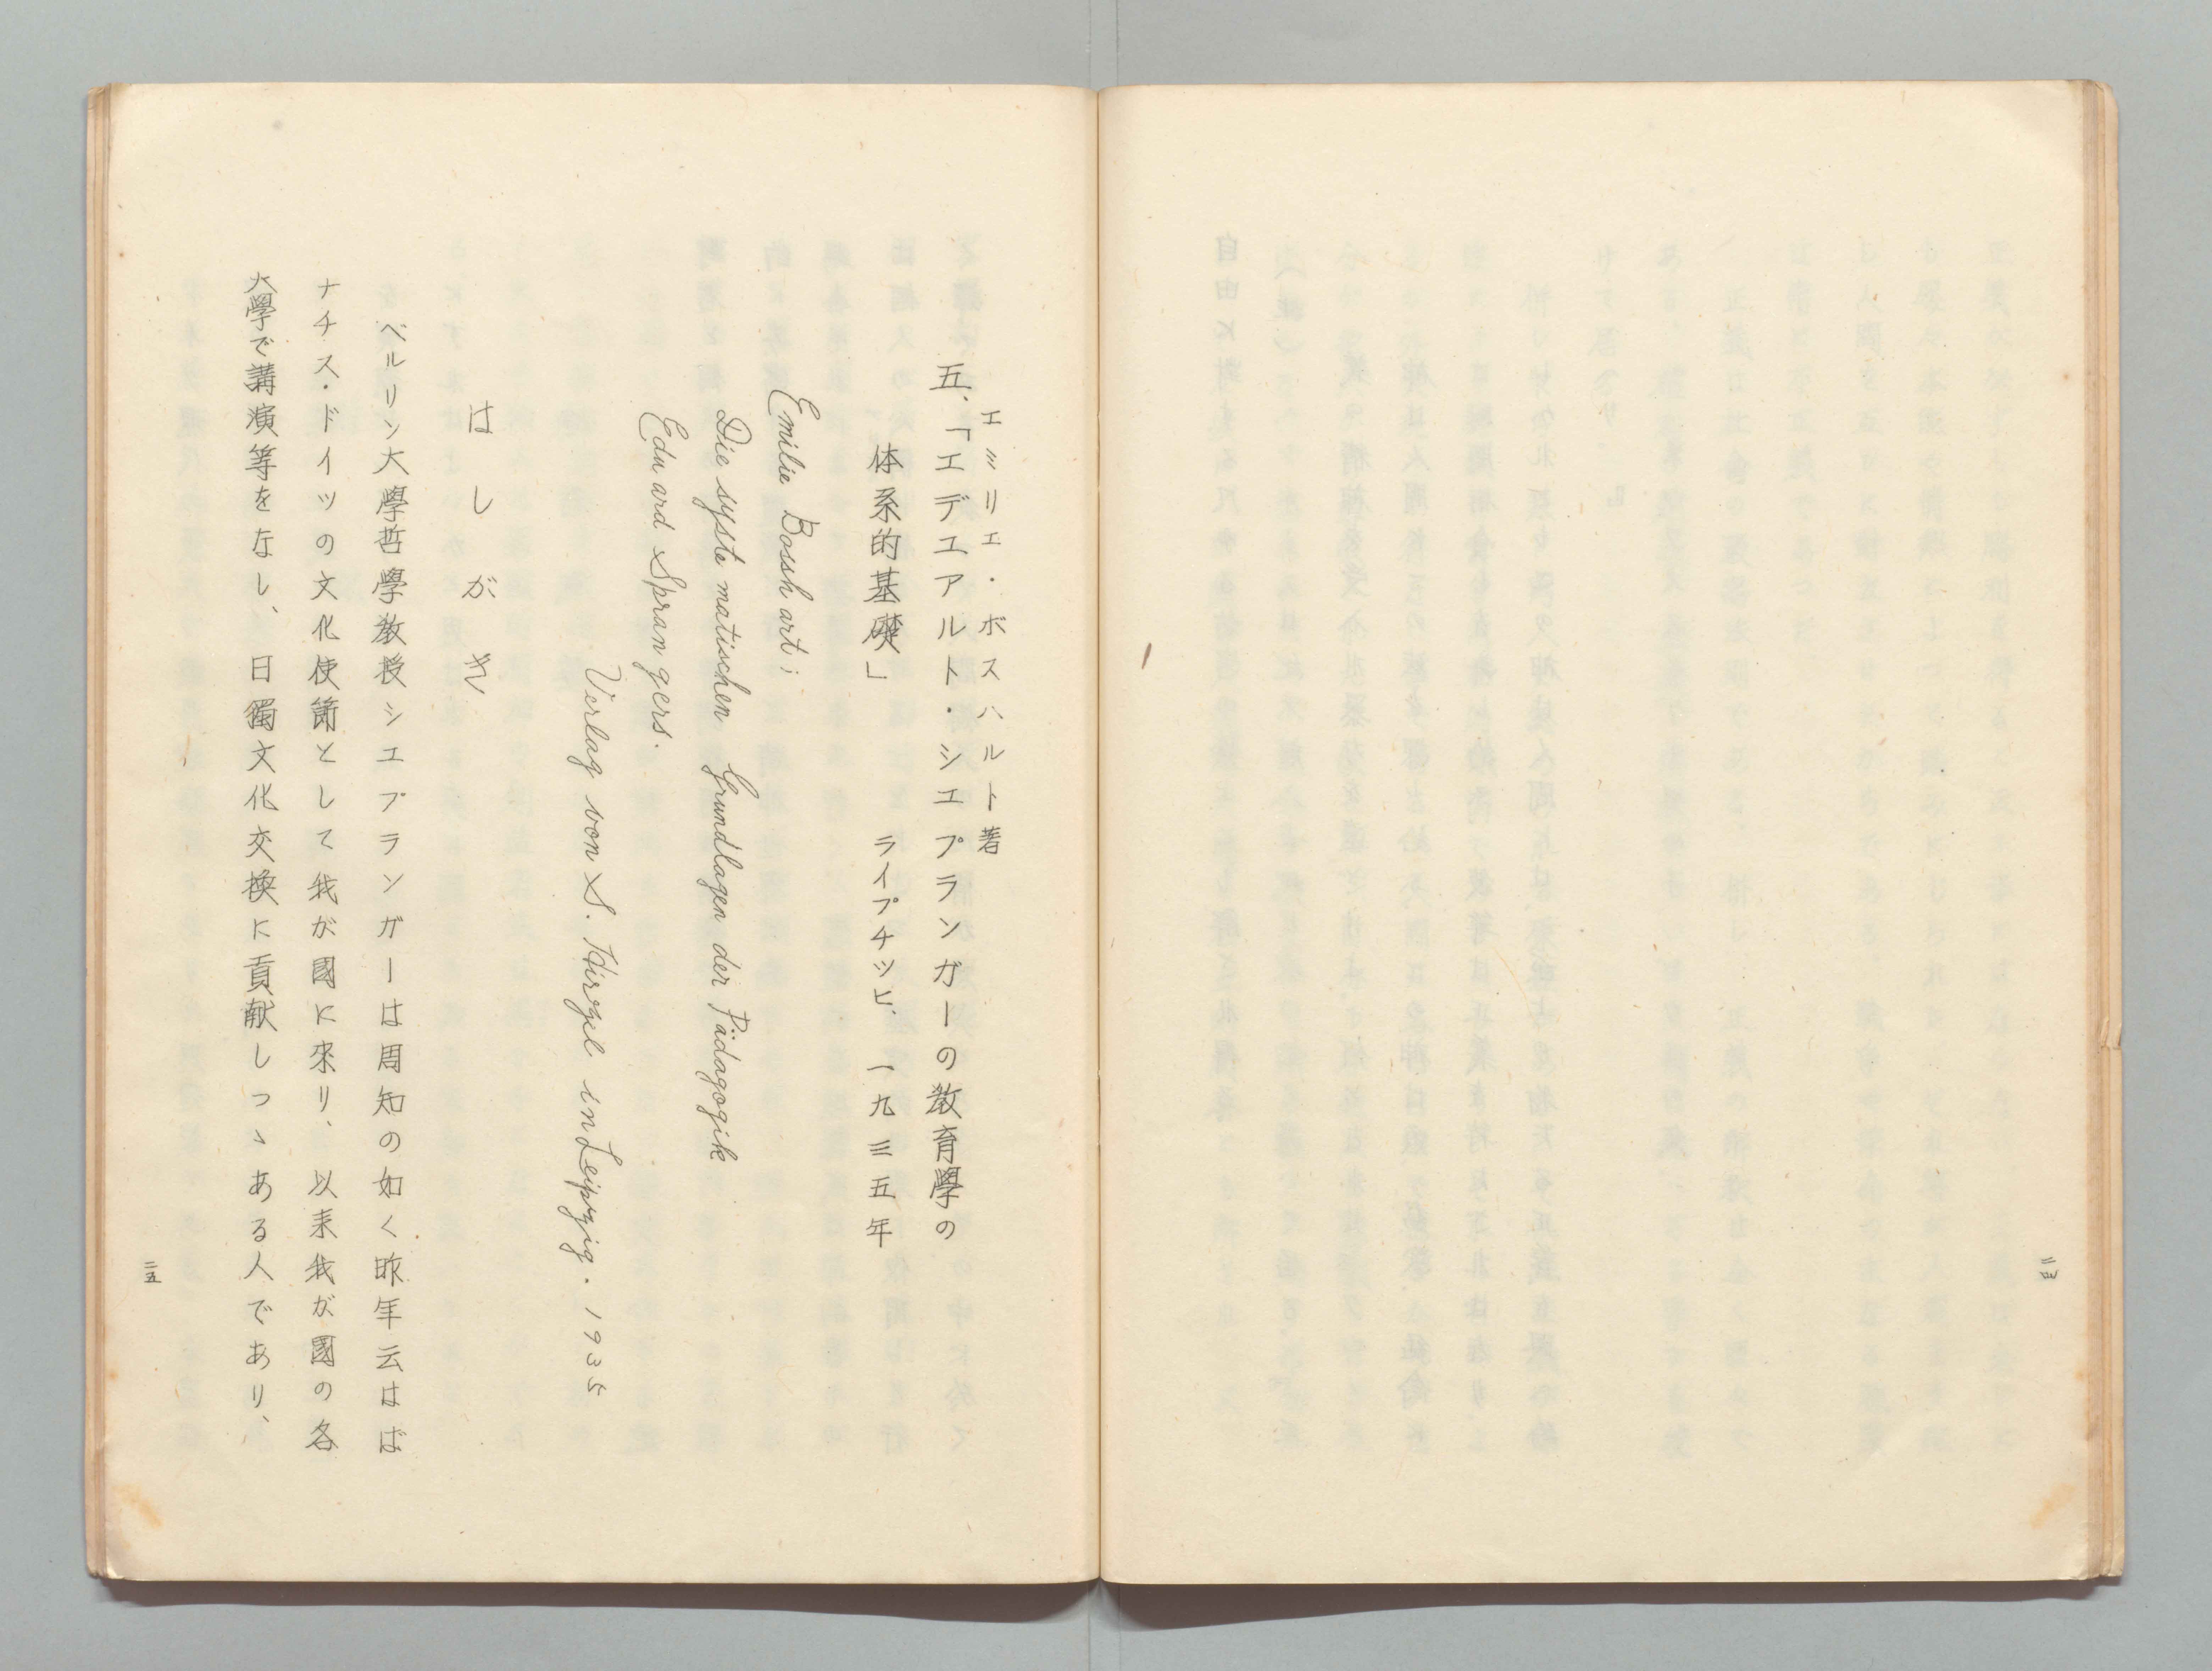 二四
エミリエ・ボスハルト著
五、「エデユアルト・シエプランガーの教育學の
体系的基礎」 ライプチッヒ、一九三五年
Emilie Bossh art;
Die syste matischen Grundlagen der Pädagogik
Edu ard Spran gers.
Verlag von S. Hirzel in Leipzig. 1935
はしがき
ベルリン大學哲學教授シエプランガーは周知の如く昨年云はば
ナチス・ドイツの文化使節として我が國に來り、以来我が國の各
大學で講演等をなし、日獨文化交換に貢献しつゝある人であり、
二五